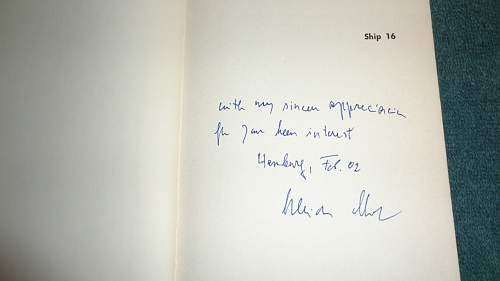 Ship 16
with my sincere appreciation
for your keen interest
Hamburg, Feb. 02
Ulrich Mohr